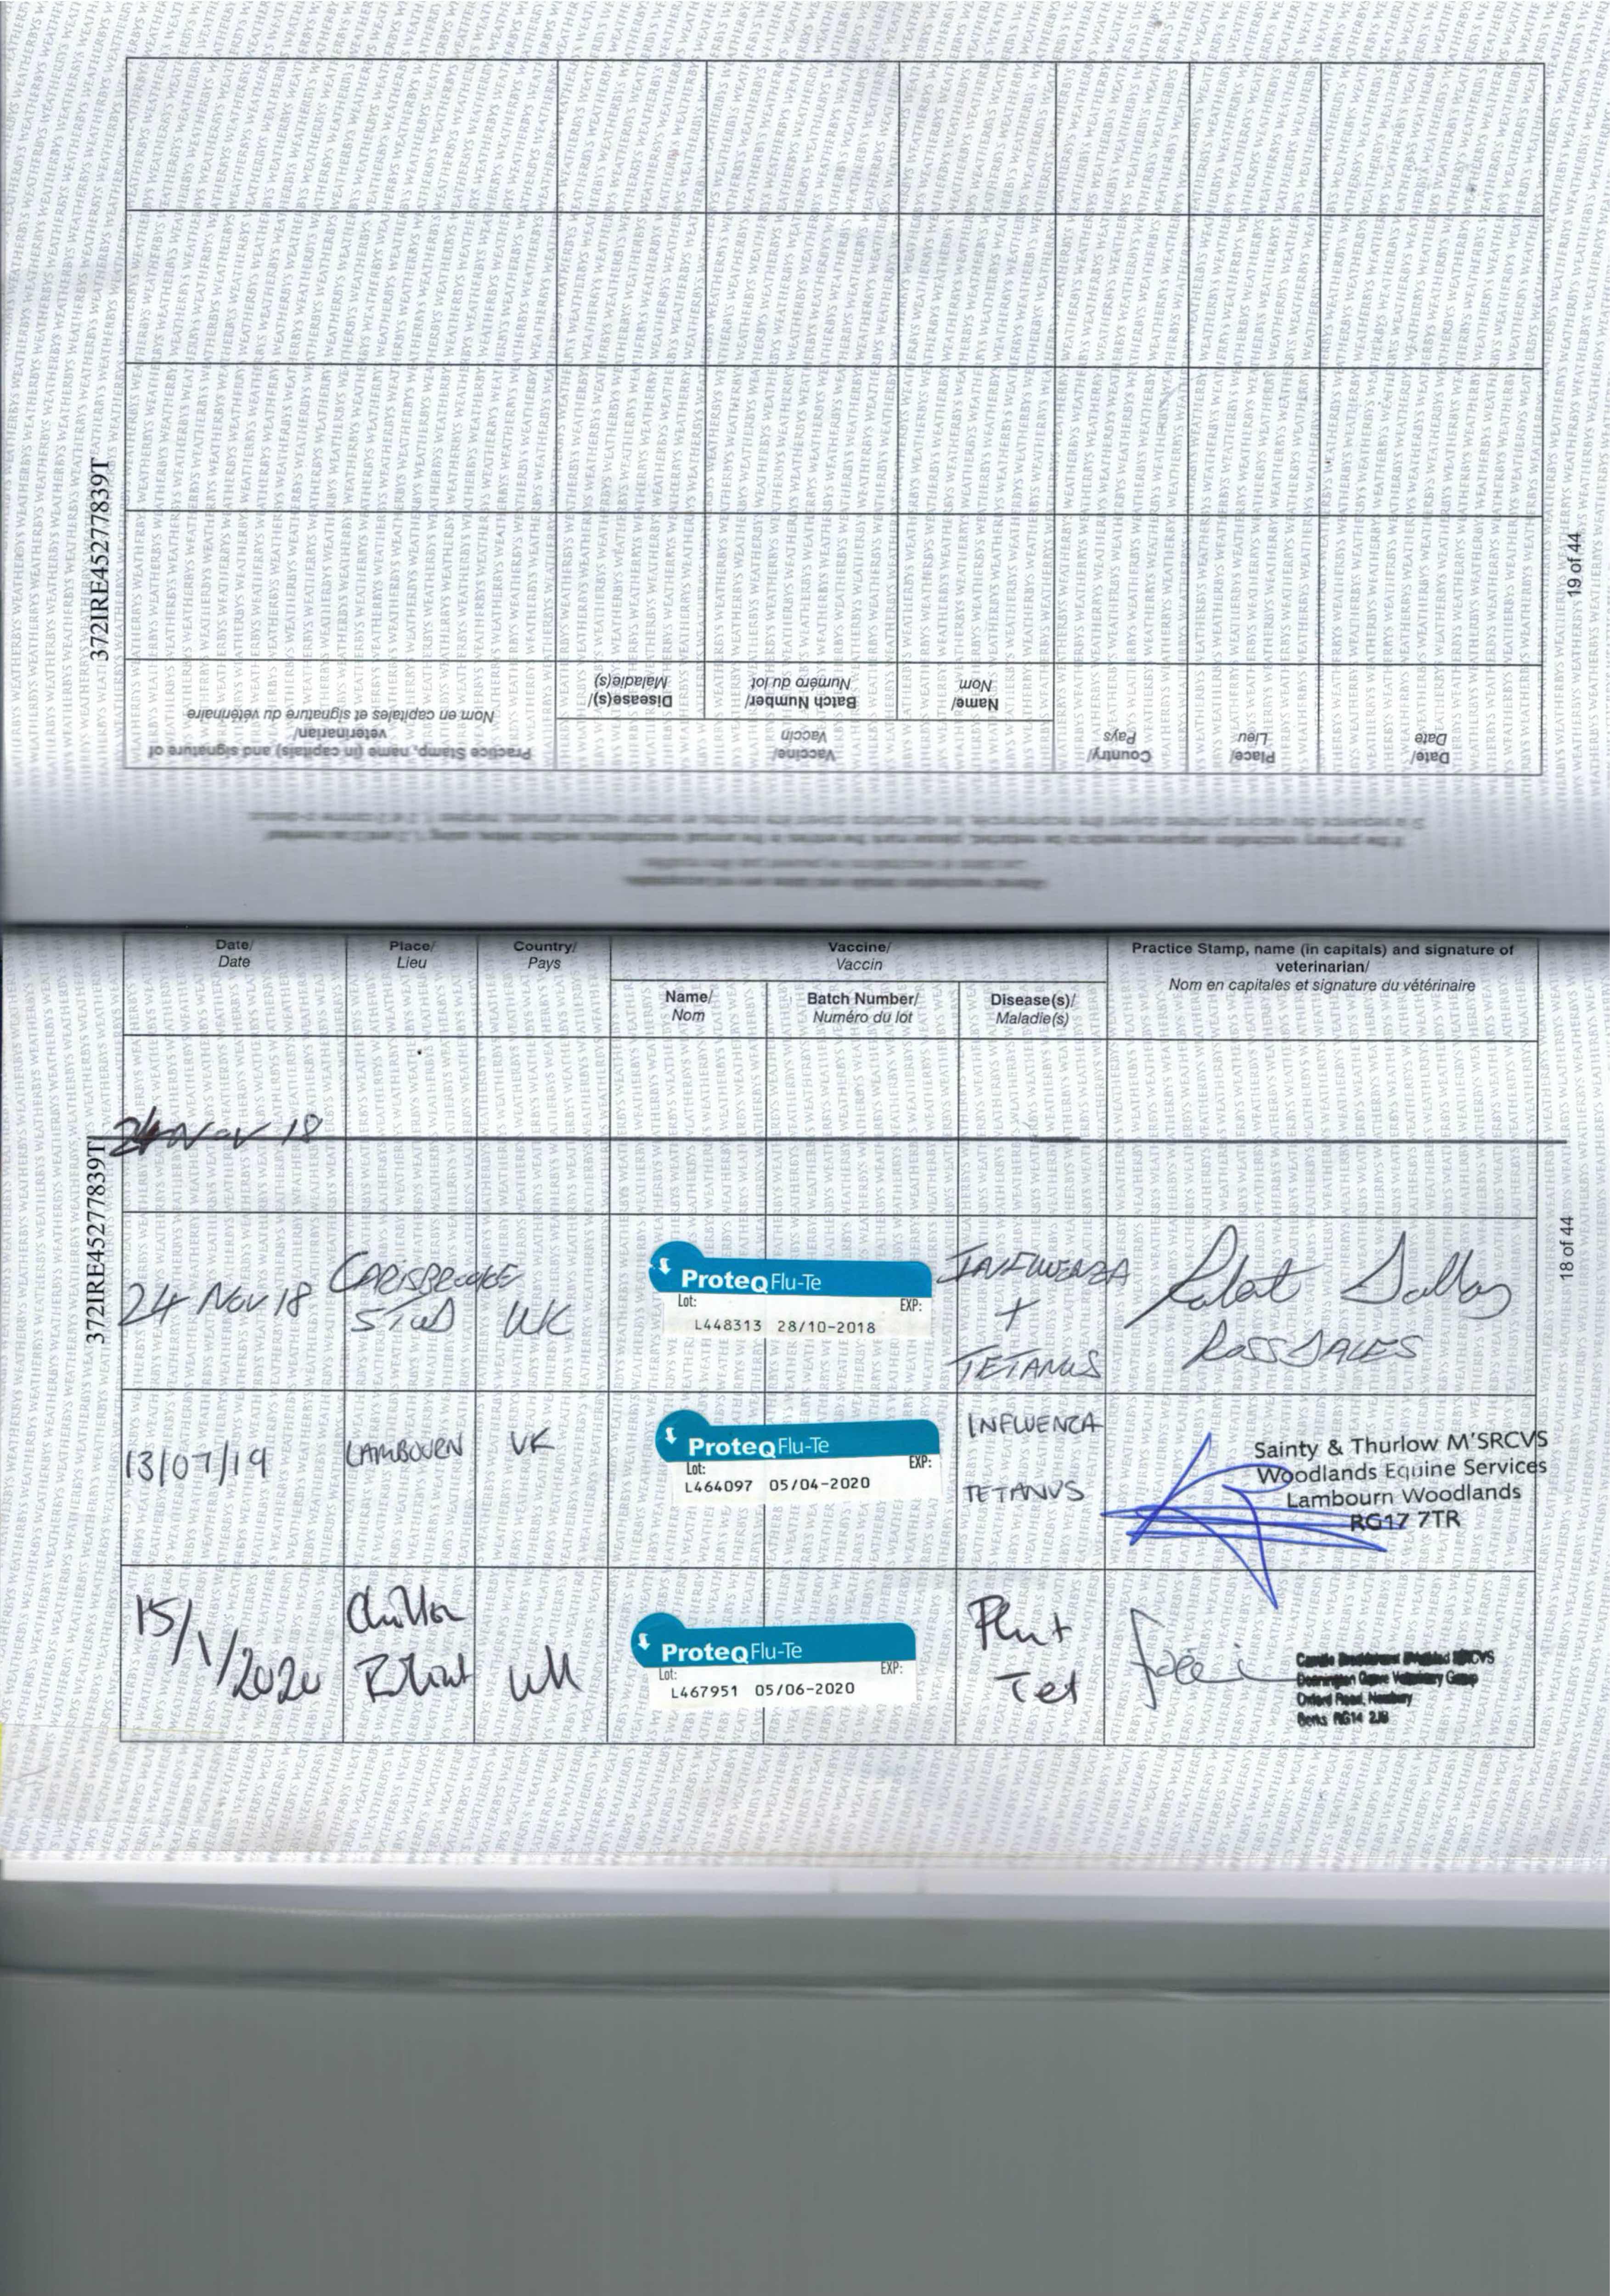 372IRE45277839T
19 of 44
Practice Stamp, name (in capitals) and signature of
veterinarian/
Nom en capitales et signature du vétérinaire
Disease(s)/
Maladie(s)
Vaccine/
Vaccin
Batch Number/
Numéro du lot
Name/
Nom
Country/
Pays
Place/
Lieu
Date/
Date
Date/
Date
Place/
Lieu
Country/
Pays
Vaccine/
Vaccin
Name/
Nom
Batch Number/
Numéro du lot
Disease(s)/
Maladie(s)
Practice Stamp, name (in capitals) and signature of
veterinarian/
Nom en capitales et signature du vétérinaire
372IRE45277839T
18 of 44
24 Nov 18
24 Nov 18
CARISBROOKE
STUD
UK
ProteqFlu-Te
Lot: EXP:
L448313 28/10-2018
INFLUENZA
+
TETANUS
ROSSDALES
13/07/19
LAMBOURN
UK
ProteqFlu-Te
Lot: EXP:
L464097 05/04-2020
INFLUENZA
TETANUS
Sainty & Thurlow M'SRCVS
Woodlands Equine Services
Lambourn Woodlands
RG17 7TR
15/1/2020
UK
ProteqFlu-Te
Lot: EXP:
L467951 05/06-2020
Flu +
Tet
Donnington Grove Veterinary Group
Oxford Road, Newbury
Berks RG14 2JB